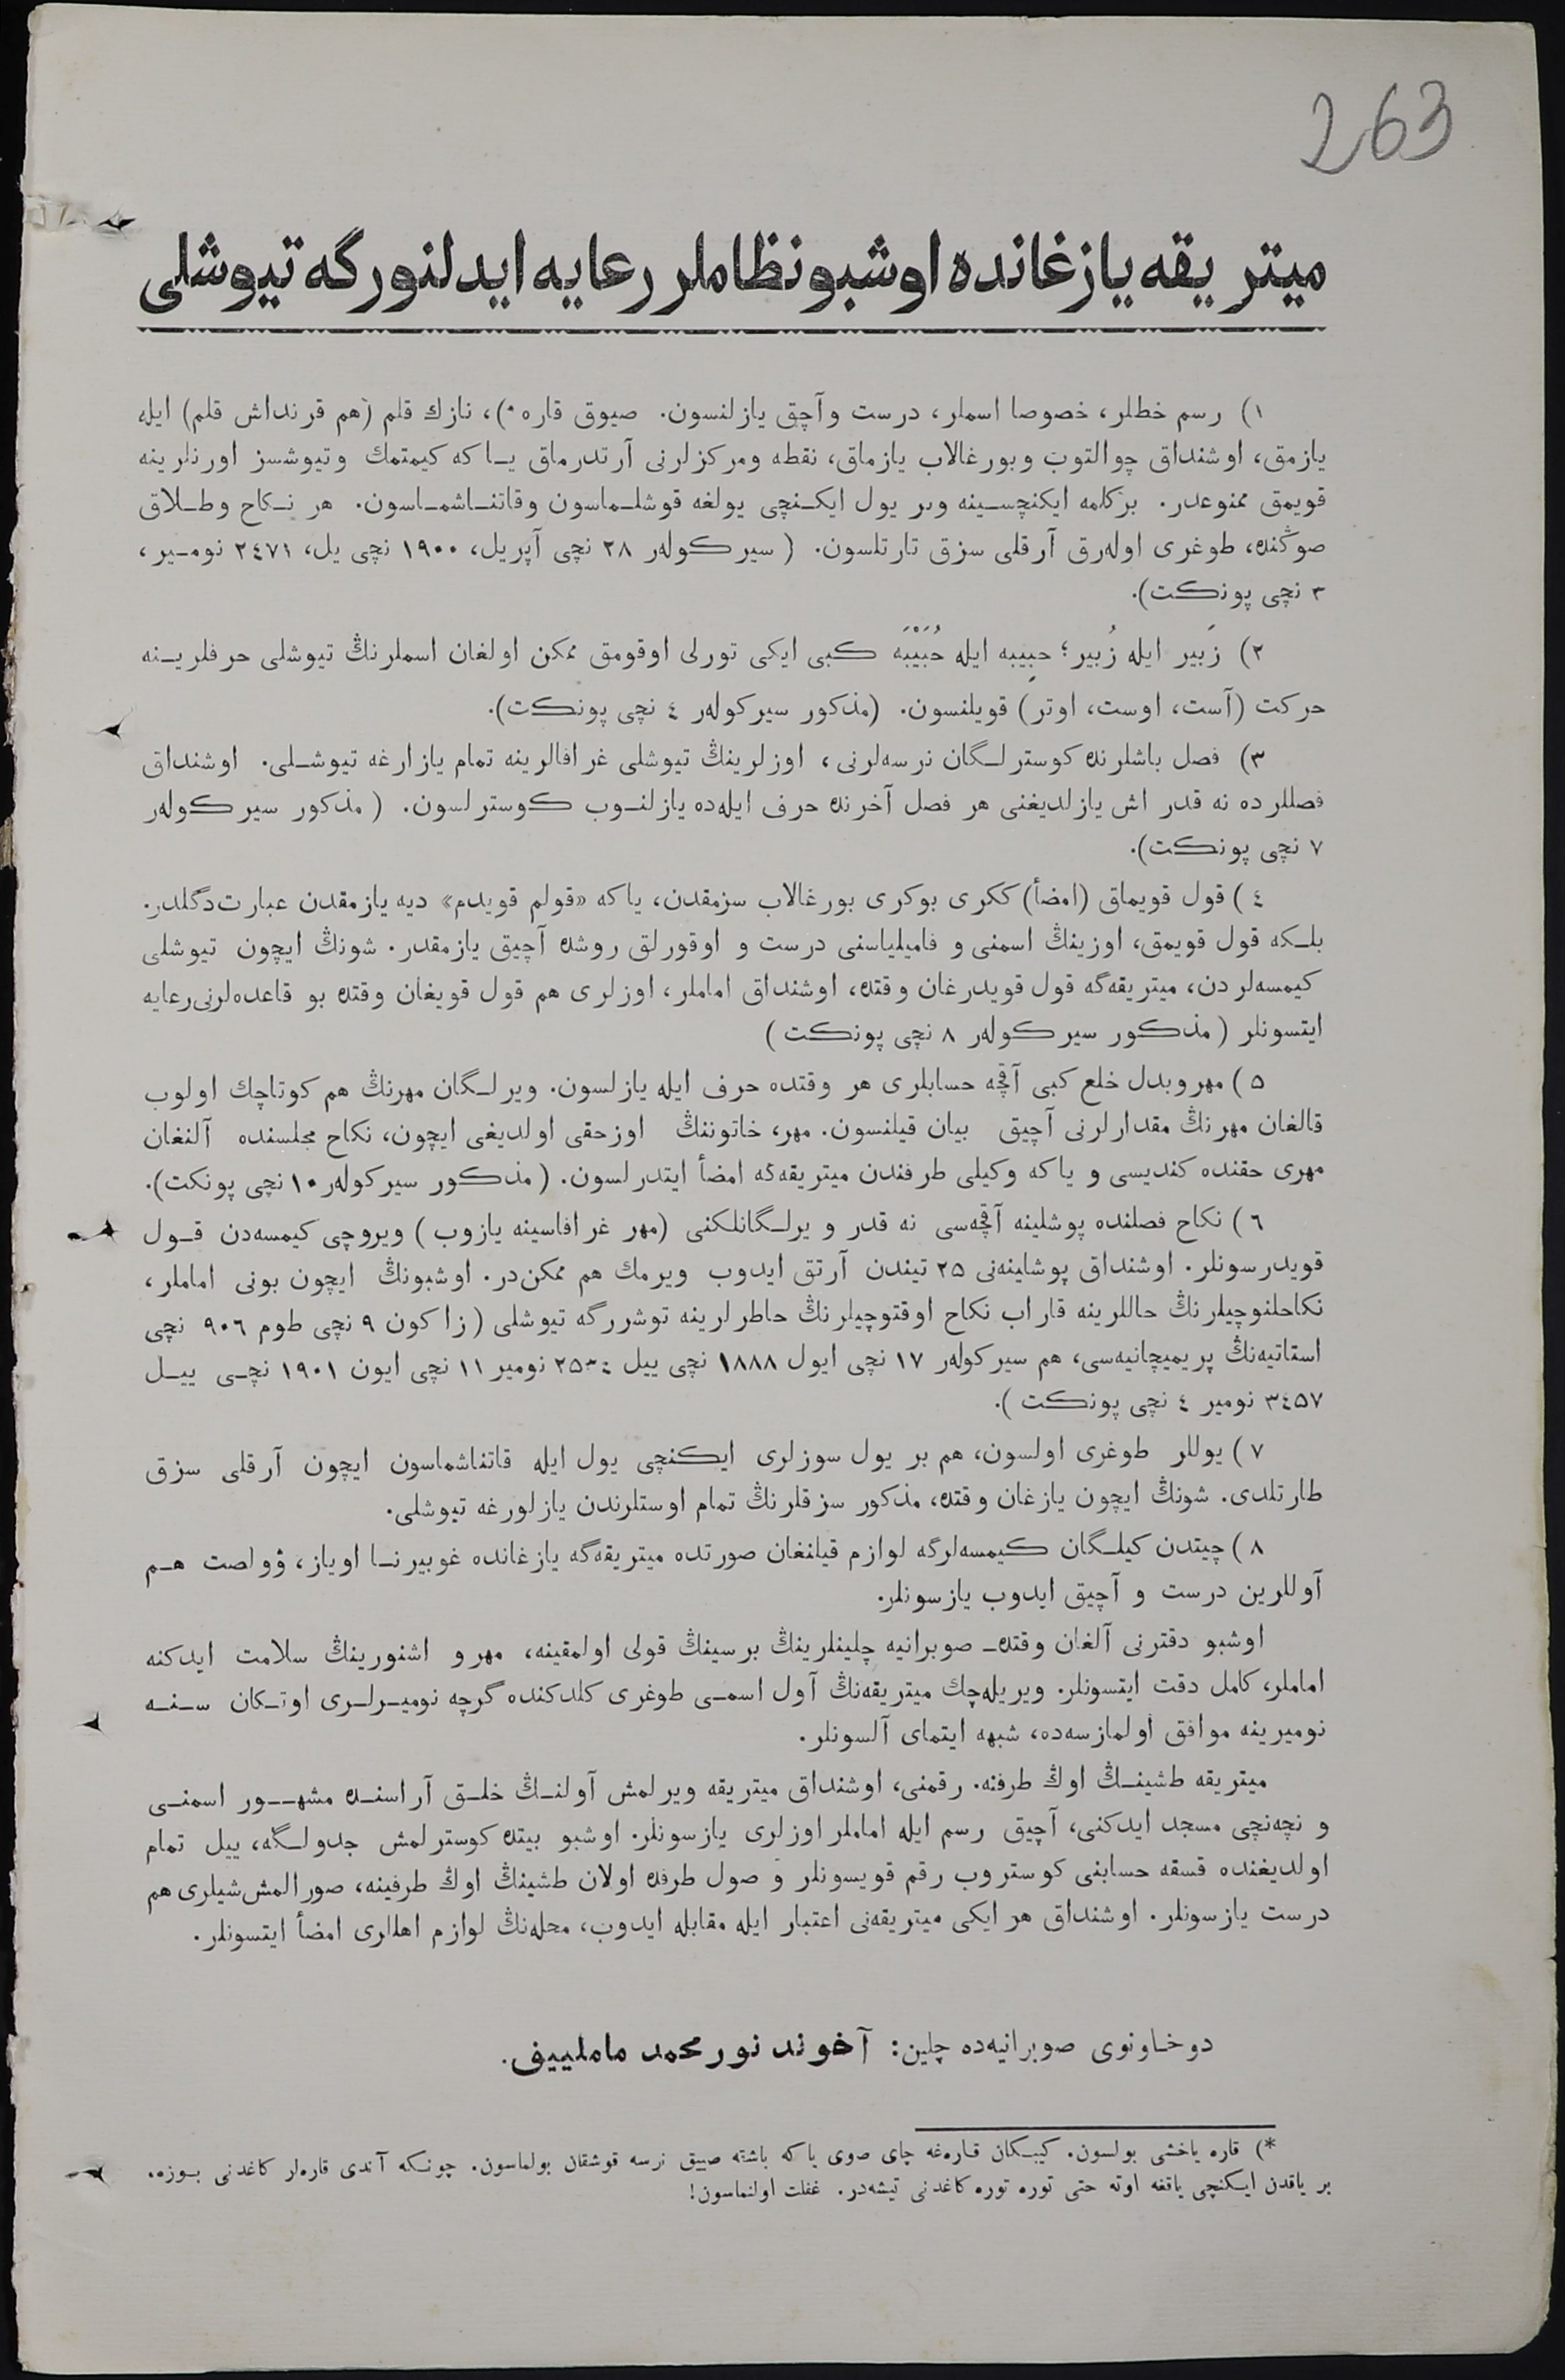 263
ميتريقه يازغانده اوشبو نظاملر رعايه ايدلنورگه تيوشلى
١) رسم خطلر، خصوصا اسملر، درست وآچق يازلنسون. صيوق قاره*)، نازك قلم (هم قرنداش قلم) ايله
يازمق، اوشنداق چوالتوب وبورغالاب يازماق، نقطه ومركزلرنى آرتدرماق يـا كه كيمتمك وتيوشسز اورنلرينه
قويمق ممنوعدر. بركلمه ايكنچسـينه وبر يول ايكـنچى يولغه قوشلـماسون وقاتنـاشمـاسون. هر نـكاح وطـلاق
صوڭنده، طوغرى اوله‌رق آرقلى سزق تارتلسون. (سيركولەر ٢٨ نچى آپريل، ١٩٠٠ نچى يل، ٢٤٧١ نومـير،
٣ نچى پونكت).
٢) زَبير ايله زُبير؛ حبِيبه ايله حُبَيْبَه كبى ايكى تورلى اوقومق ممكن اولغان اسملرنڭ تيوشلى حرفلريـنه
حركت (آست، اوست، اوتر) قويلنسون. (مذكور سيركولەر ٤ نچى پونكت).
٣) فصل باشلرنده كوسترلـگان نرسه‌لرنى، اوزلرينڭ تيوشلى غرافالرينه تمام يازارغه تيوشـلى. اوشنداق
فصللرده نه قدر اش يازلديغنى هر فصل آخرنده حرف ايله‌ده يازلنـوب كوسترلسون. (مذكور سيركولەر
٧ نچى پونكت).
٤) قول قويماق (امضأ) ككرى بوكرى بورغالاب سزمقدن، ياكه «قولم قويدم» ديه يازمقدن عبارت دگلدر.
بلـكه قول قويمق، اوزينڭ اسمنى و فاميلياسنى درست و اوقورلق روشده آچيق يازمقدر. شونڭ ايچون تيوشلى
كيمسه‌لردن، ميتريقه‌گه قول قويدرغان وقتده، اوشنداق اماملر، اوزلرى هم قول قويغان وقتده بو قاعده‌لرنى رعايه
ايتسونلر (مذكور سيركولەر ٨ نچى پونكت)
٥) مهر وبدل خلع كبى آقچه حسابلرى هر وقتده حرف ايله يازلسون. ويرلـگان مهرنڭ هم كوتاچك اولوب
قالغان مهرنڭ مقدارلرنى آچيق بيان قيلنسون. مهر، خاتوننڭ اوزحقى اولديغى ايچون، نكاح مجلسنده آلنغان
مهرى حقنده كنديسى و ياكه وكيلى طرفندن ميتريقه‌گه امضأ ايتدرلسون. (مذكور سيركولەر ١٠ نچى پونكت).
٦) نكاح فصلنده پوشلينه آقچه‌سى نه قدر و يرلـگانلكنى (مهر غرافاسينه يازوب) ويروچى كيمسه‌دن قـول
قويدرسونلر. اوشنداق پوشلينه‌نى ٢٥ تيندن آرتق ايدوب ويرمك هم ممكن‌در. اوشبونڭ ايچون بونى اماملر،
نكاحلنوچيلرنڭ حاللرينه قاراب نكاح اوقتوچيلرنڭ خاطرلرينه توشررگه تيوشلى (زاكون ٩ نچى طوم ٩٠٦ نچى
استاتيه‌نڭ پريميچانيه‌سى، هم سيركولەر ١٧ نچى ايول ١٨٨٨ نچى ييل ٢٥٣٤ نومير ١١ نچى ايون ١٩٠١ نچـى ييـل
٣٤٥٧ نومير ٤ نچى پونكت).
٧) يوللر طوغرى اولسون، هم بر يول سوزلرى ايكنچى يول ايله قاتناشماسون ايچون آرقلى سزق
طارتلدى. شونڭ ايچون يازغان وقتده، مذكور سزقلرنڭ تمام اوستلرندن يازلورغه تيوشلى.
٨) چيتدن كيلـگان كيمسه‌لرگه لوازم قيلنغان صورتده ميتريقه‌گه يازغانده غوبيرنـا اوياز، ۋولصت هـم
آوللرين درست و آچيق ايدوب يازسونلر.
اوشبو دفترنى آلغان وقتدەـ صوبرانيه چلينلرينڭ برسينڭ قولى اولمقينه، مهر و اشنورينڭ سلامت ايدكنه
اماملر، كامل دقت ايتسونلر. ويريله‌چك ميتريقه‌نڭ آول اسمـى طوغرى كلدكنده گرچه نوميـرلـرى اوتـكان سـنـه
نوميرينه موافق اولمازسه‌ده، شبهه ايتماى آلسونلر.
ميتريقه طشينـڭ اوڭ طرفنه، رقمنى، اوشنداق ميتريقه ويرلمش آولنـڭ خلـق آراسنـده مشهـور اسمنـى
و نچه‌نچى مسجد ايدكنى، آچيق رسم ايله اماملر اوزلرى يازسونلر. اوشبو بيتده كوسترلمش جدولـگه، ييل تمام
اولديغنده قسقه حسابنى كوستروب رقم قويسونلر و صول طرفده اولان طشينڭ اوڭ طرفينه، صورالمش شيلرى هم
درست يازسونلر. اوشنداق هر ايكى ميتريقه‌نى اعتبار ايله مقابله ايدوب، محله‌نڭ لوازم اهللرى امضأ ايتسونلر.
دوخـاونوى صوبرانيه‌ده چلين: آخوند نورمحمد ماملييف.
*) قاره ياخشى بولسون. كيبـكان قـاره‌غه چاى صوى ياكه باشته صيق نرسه قوشقان بولماسون. چونـكه آندى قاره‌لر كاغدنى بـوزه.
بر ياقدن ايـكنچى ياقغه اوته حتى توره توره كاغدنى تيشه‌در. غفلت اولنماسون!